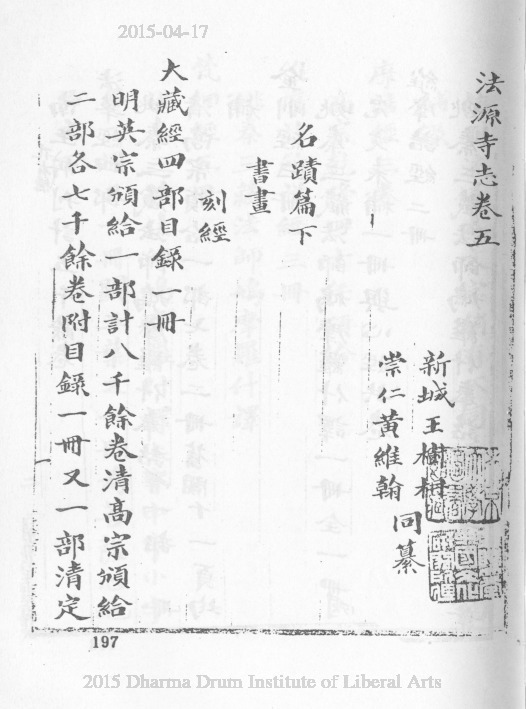 2015-04-17
法源寺志卷五
新城王樹枏
崇仁黃維翰
同纂
名蹟篇下
書畫
刻經
大藏經四部目錄一冊
明英宗頒給一部計八千餘卷清高宗頒給
二部各七千餘卷附目錄一冊又一部清定
197
2015 Dharma Drum Institute of Liberal Arts